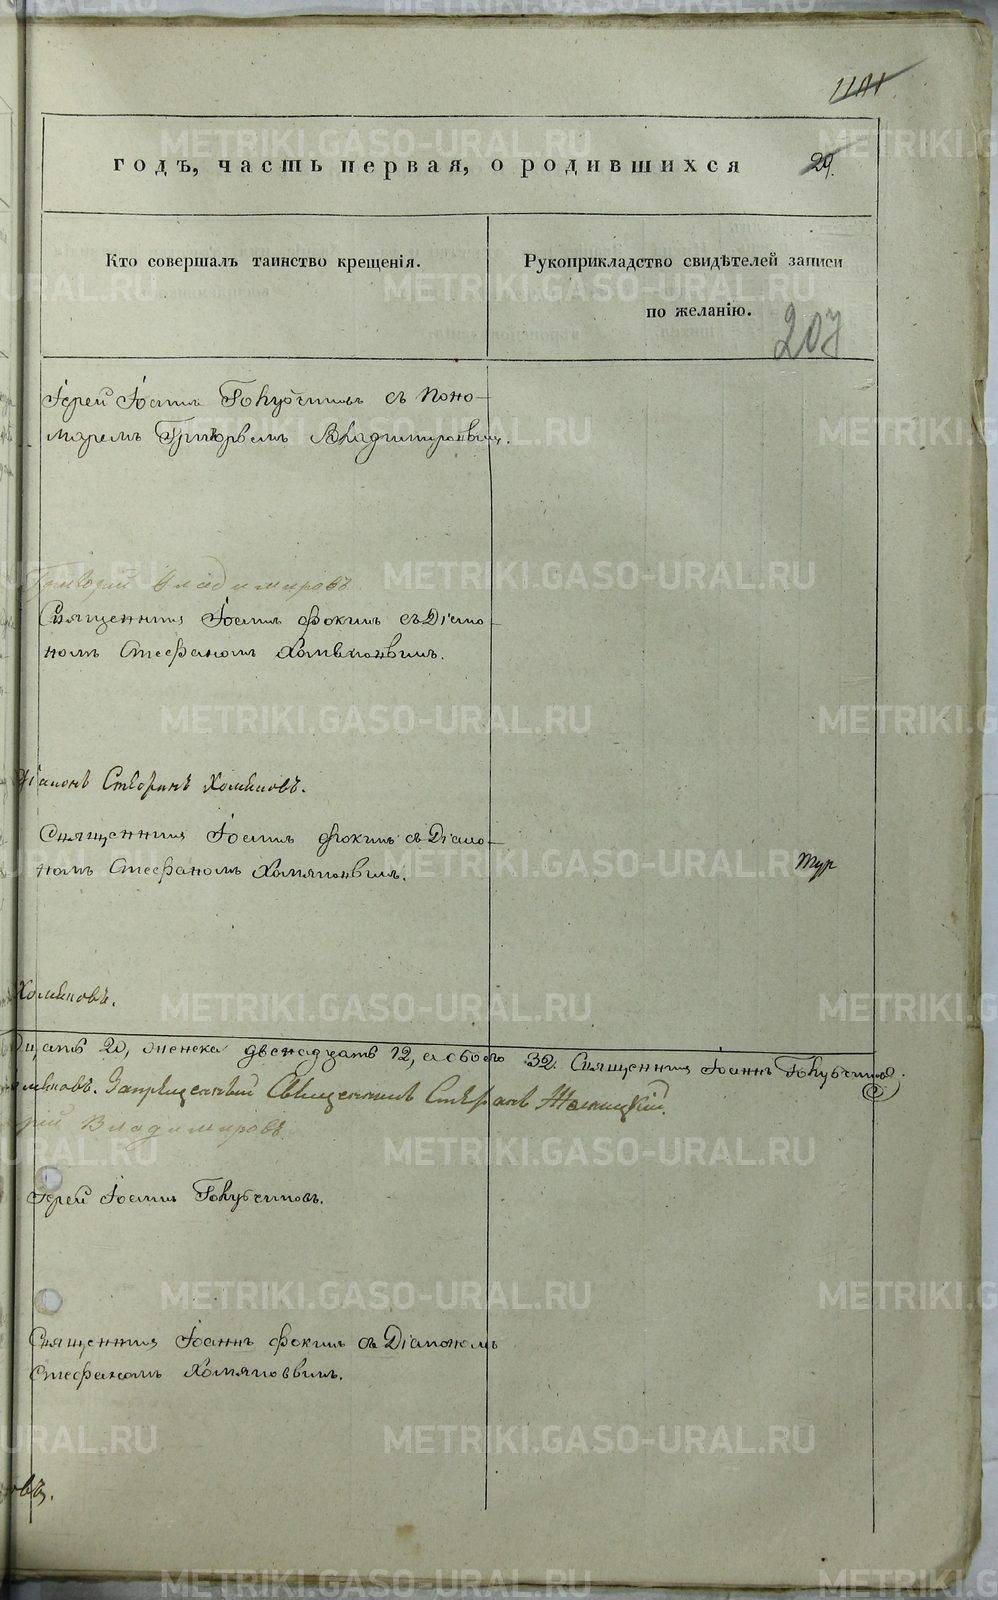 годъ, часть первая, о родившихся 29.
Кто совершалъ таинство крещенія.
Рукоприкладство свидѣтелей записи
по желанію.
207
Іерей Іоаннъ Голубчиковъ съ Поно-
маремъ Григорьемъ Владимировымъ.
Григорій Владимировъ
Священникъ Іоаннъ Фокинъ съ Діако-
номъ Стефаномъ Хомяковымъ.
Діаконъ Стефанъ Хомяковъ.
Священникъ Іоаннъ Фокинъ съ Діако-
номъ Стефаномъ Хомяковымъ.
Хомяковъ.
20, женска двенадцать 12, а обоего 32. Священникъ Іоаннъ Голубчиковъ.
Запрещенный Священникъ Стефанъ
Владимировъ
Іерей Іоаннъ Голубчиковъ.
Священникъ Іоаннъ Фокинъ съ Діакономъ
Стефаномъ Хомяковымъ.
METRIKI.GASO-URAL.RU